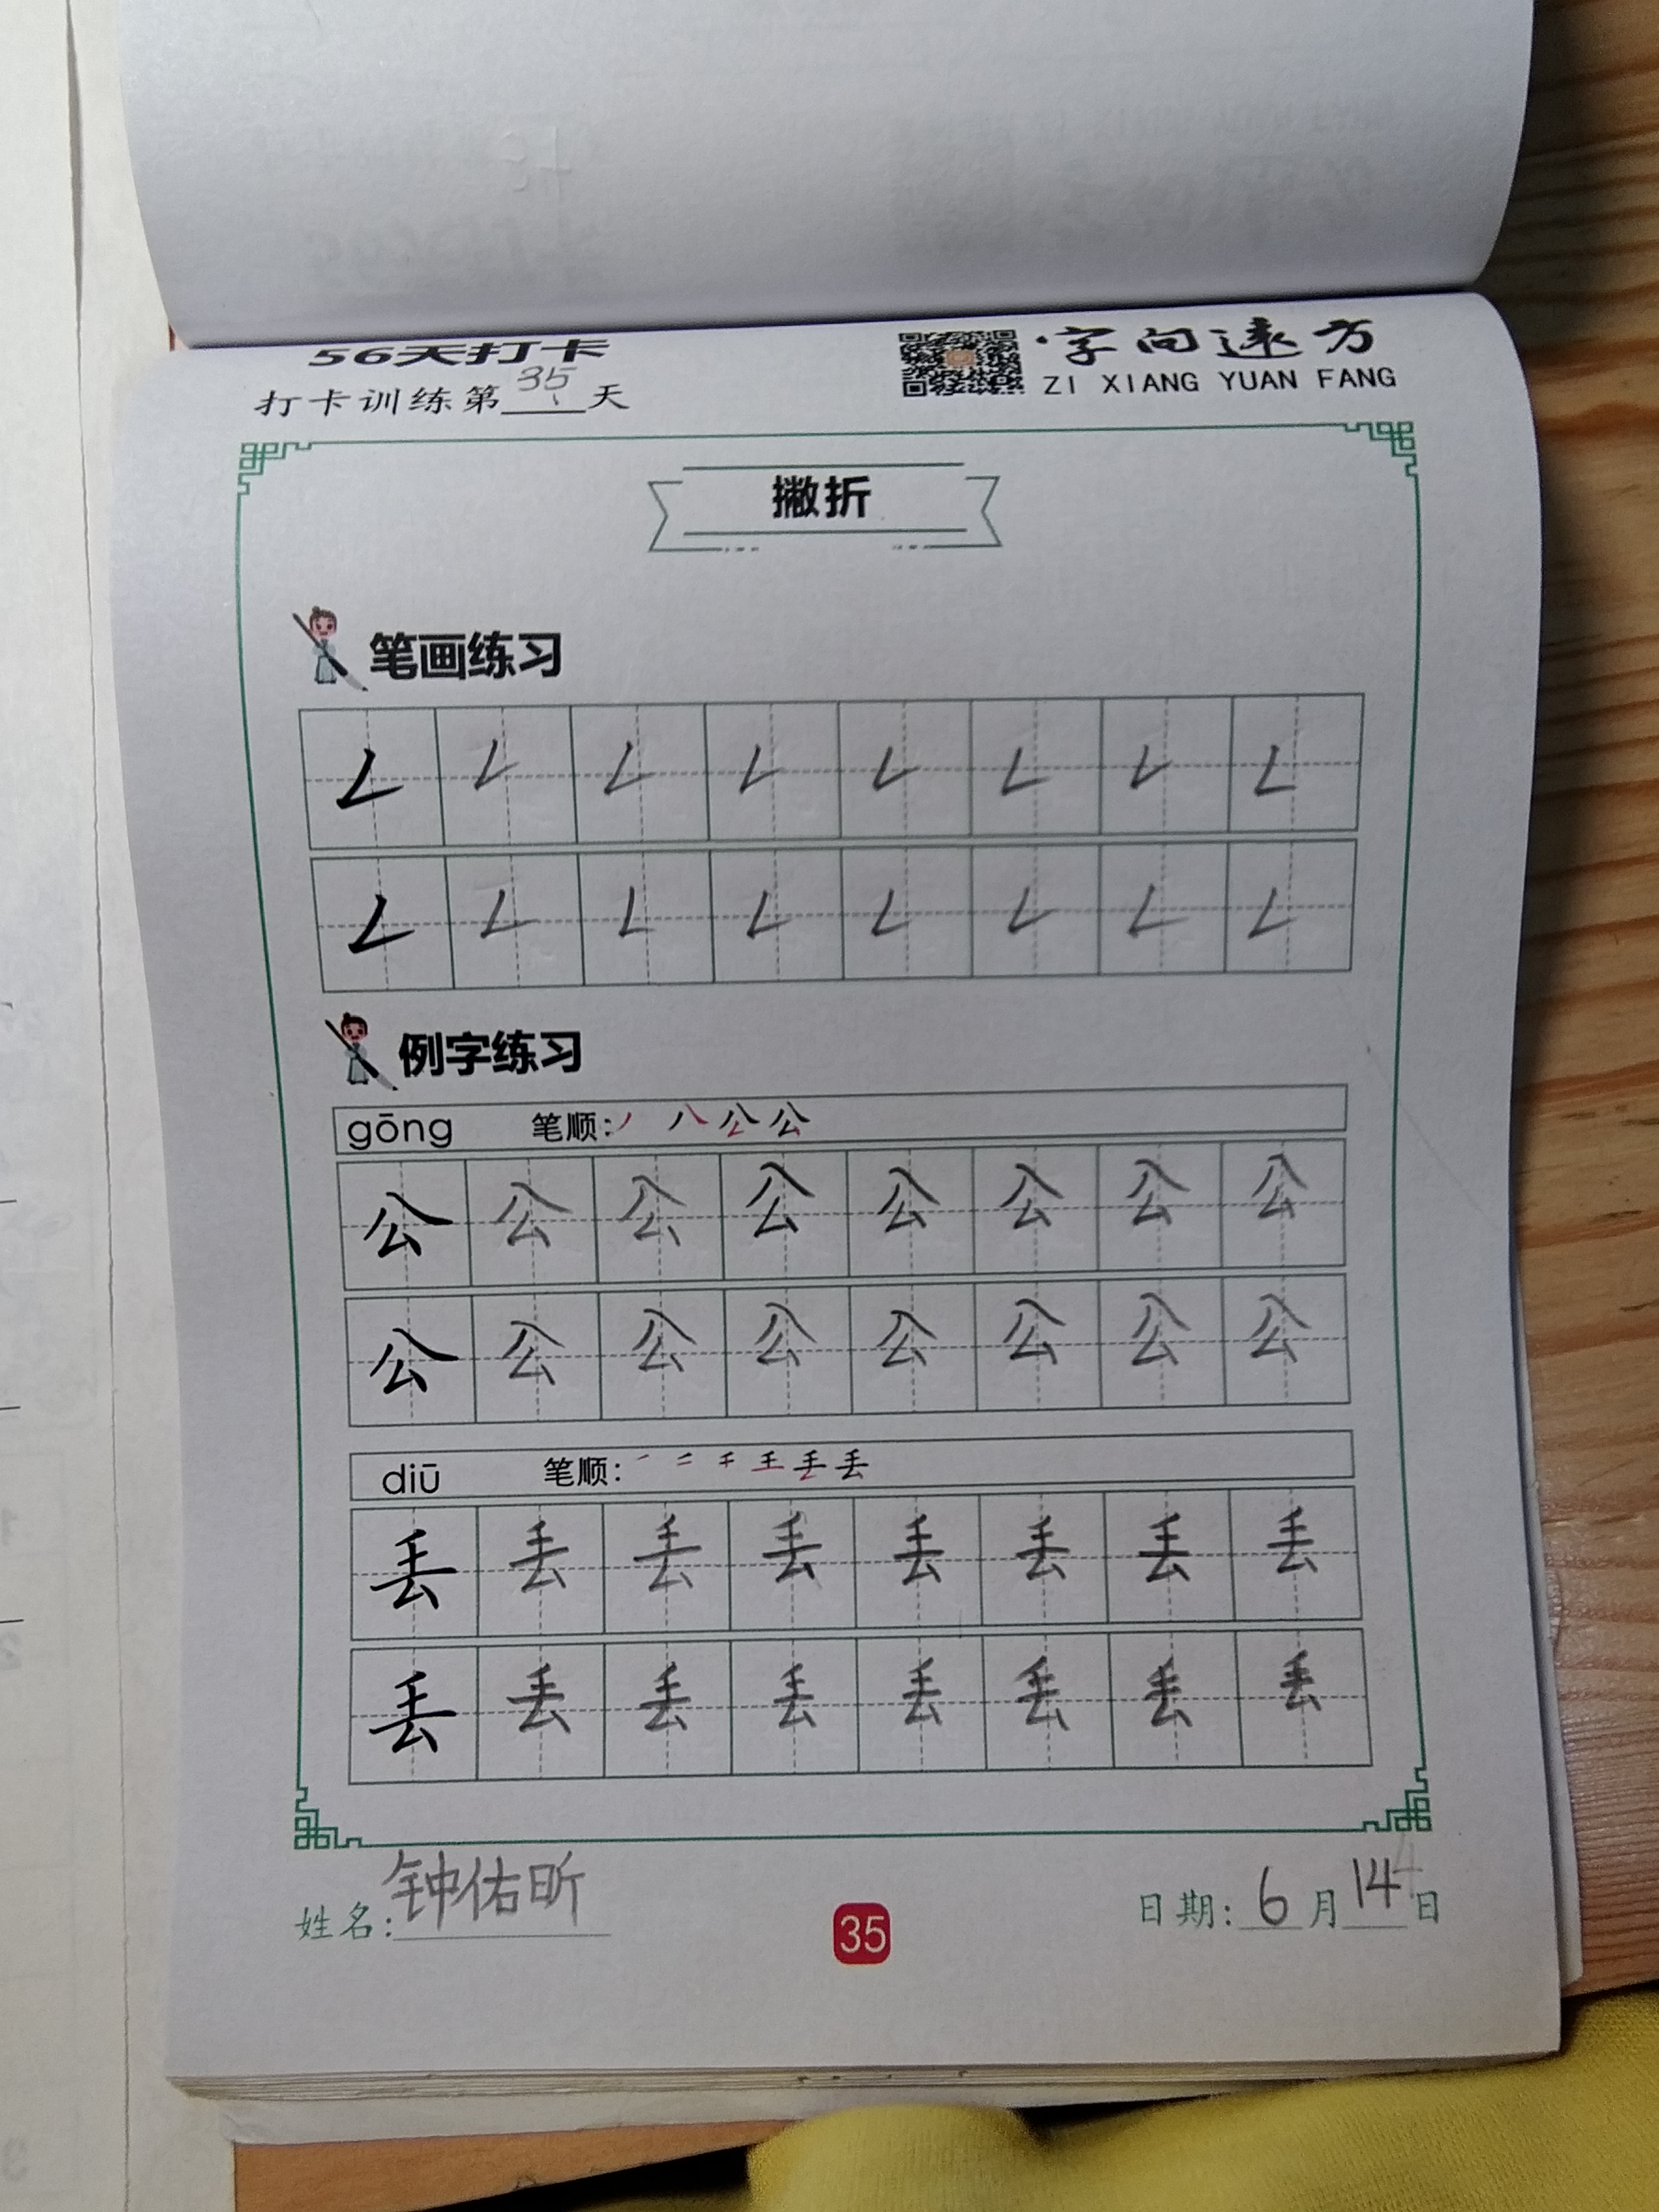 56天打卡
打卡训练第35天
字向远方
ZI XIANG YUAN FANG
撇折
笔画练习
𠃋 𠃋 𠃋 𠃋 𠃋 𠃋 𠃋 𠃋
𠃋 𠃋 𠃋 𠃋 𠃋 𠃋 𠃋 𠃋
例字练习
gōng 笔顺: 丿 八 公 公
公 公 公 公 公 公 公 公
公 公 公 公 公 公 公 公
diū 笔顺: 一 二 千 王 丢 丢
丢 丢 丢 丢 丢 丢 丢 丢
丢 丢 丢 丢 丢 丢 丢 丢
姓名: 钟佑昕
35
日期: 6月14日